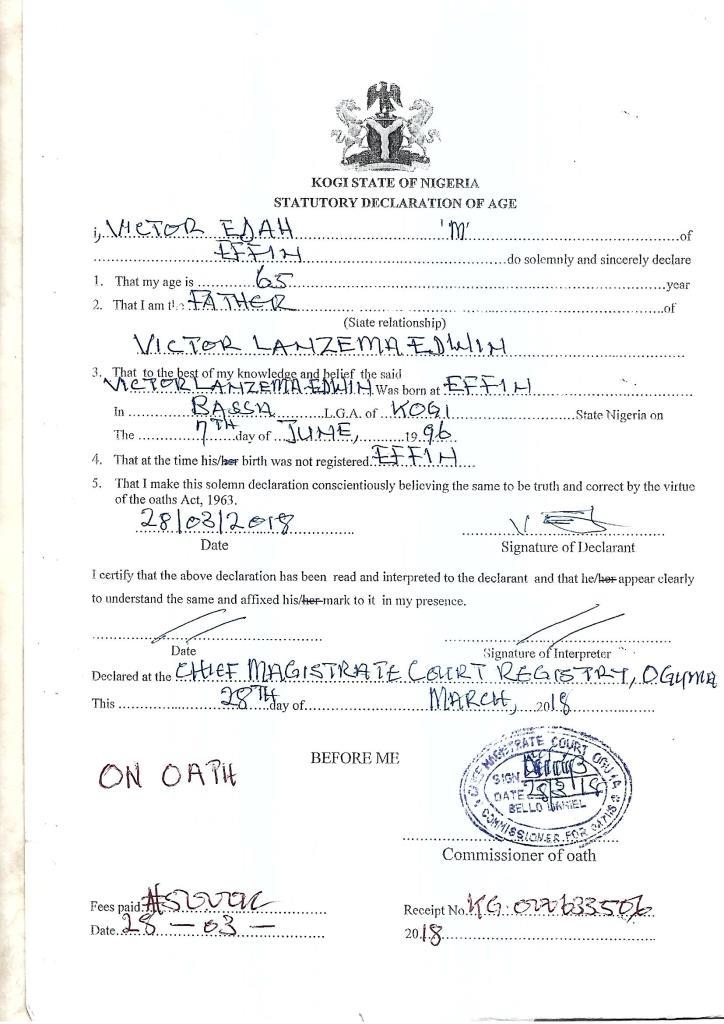 KOGI STATE OF NIGERIA
STATUTORY DECLARATION OF AGE
i, VICTOR EDAH 'M' of
EFFIN do solemnly and sincerely declare
1. That my age is 65 year
2. That I am the FATHER of
(State relationship)
VICTOR LANZEMA EDWIN
3. That to the best of my knowledge and belief the said
VICTOR LANZEMA EDWIN Was born at EFFIN
In BASSA L.G.A. of KOGI State Nigeria on
The 7TH day of JUNE, 1996
4. That at the time his/her birth was not registered EFFIN
5. That I make this solemn declaration conscientiously believing the same to be truth and correct by the virtue
of the oaths Act, 1963.
28/03/2018
Date Signature of Declarant
I certify that the above declaration has been read and interpreted to the declarant and that he/her appear clearly
to understand the same and affixed his/her mark to it in my presence.
Date Signature of Interpreter
Declared at the CHIEF MAGISTRATE COURT REGISTRY, OGUMA
This 28TH day of MARCH, 2018
BEFORE ME
ON OATH
CHIEF MAGISTRATE COURT OGUMA
SIGN
DATE 28/3/18
BELLO DANIEL
COMMISSIONER FOR OATHS
Commissioner of oath
Fees paid: Receipt No. KG
Date 28 - 03 - 2018